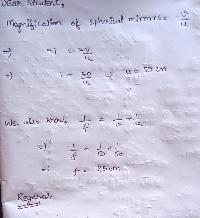 Dear Student,
Magnification of spherical mirrors = -v/u
⇒
⇒ u = 50 cm
We also know, 1/f = 1/v + 1/u
⇒ 1/f = 1/50 + 1/50
f = 25cm
Regards